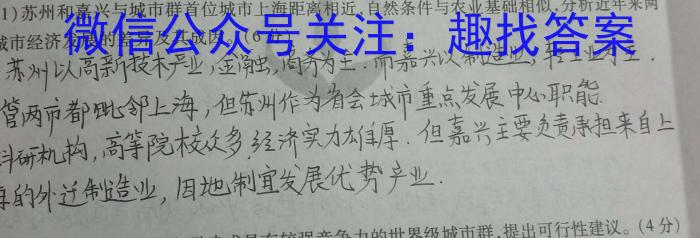 1)苏州和嘉兴与城市群首位城市上海距离相近,自然条件与农业基础相似,分析近年来两
城市经济发展的差异及其成因。(6分)
微信公众号关注：趣找答案
苏州以高新技术产业,金融,商务为主.而嘉兴以制造业,轻工业为主.
管两市都毗邻上海,但苏州作为省会城市重点发展中心职能.
科研机构,高等院校众多,经济实力雄厚.但嘉兴主要负责承担来自上
的外迁制造业,因地制宜发展优势产业.
有较强竞争力的世界级城市群,提出可行性建议。(4分)